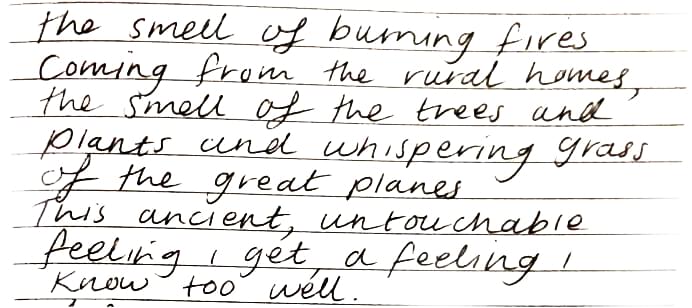 the smell of burning fires
Coming from the rural homes,
the smell of the trees and
plants and whispering grass
of the great planes
This ancient, untouchable
feeling i get, a feeling i
Know too well.